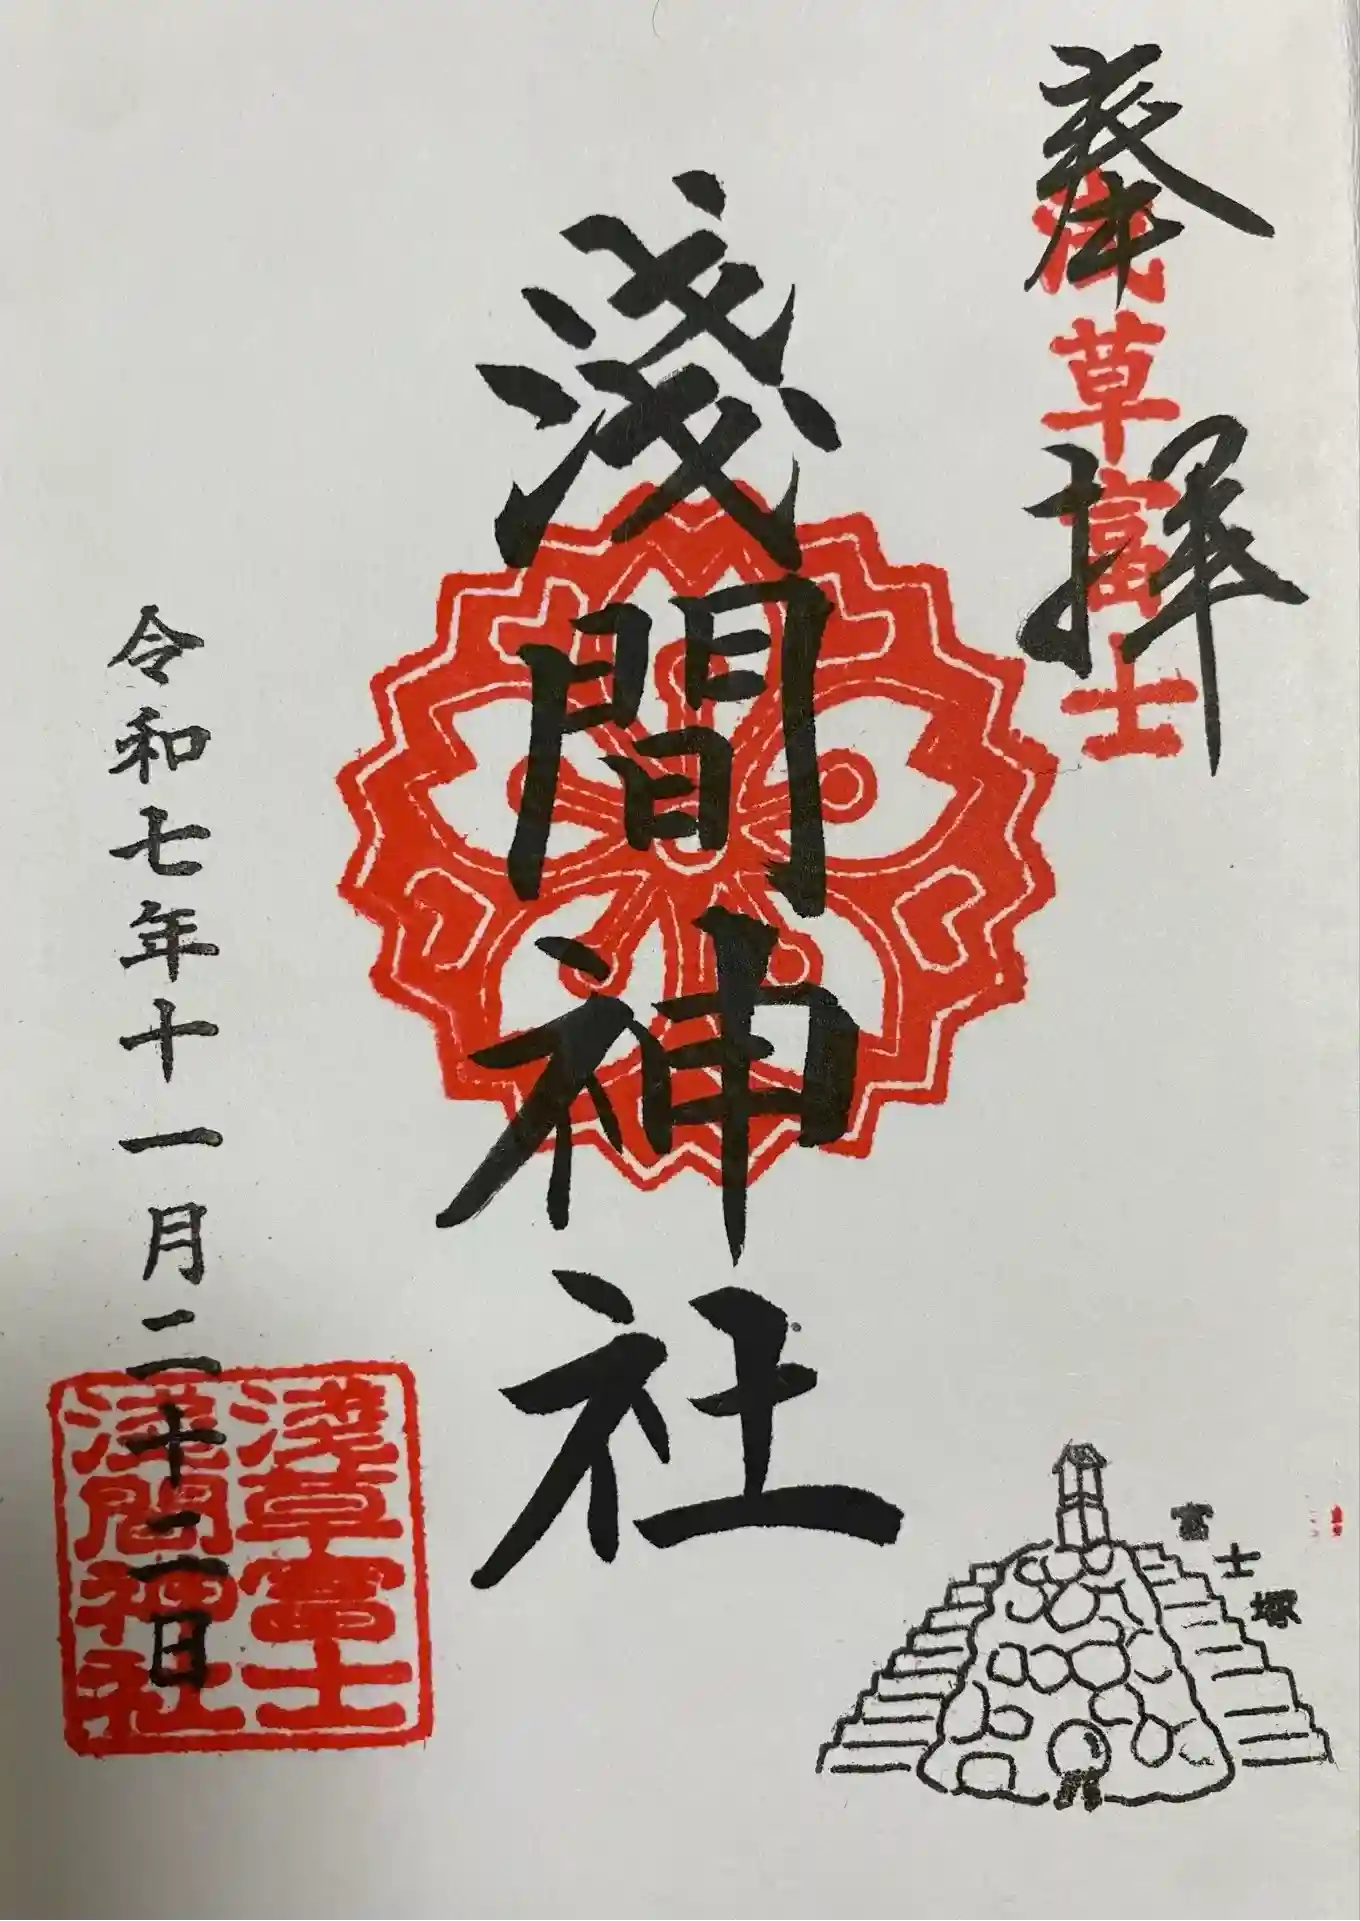 奉拝
浅草富士
淺間神社
令和七年十一月二十二日
淺草富士
淺間神社
富士塚